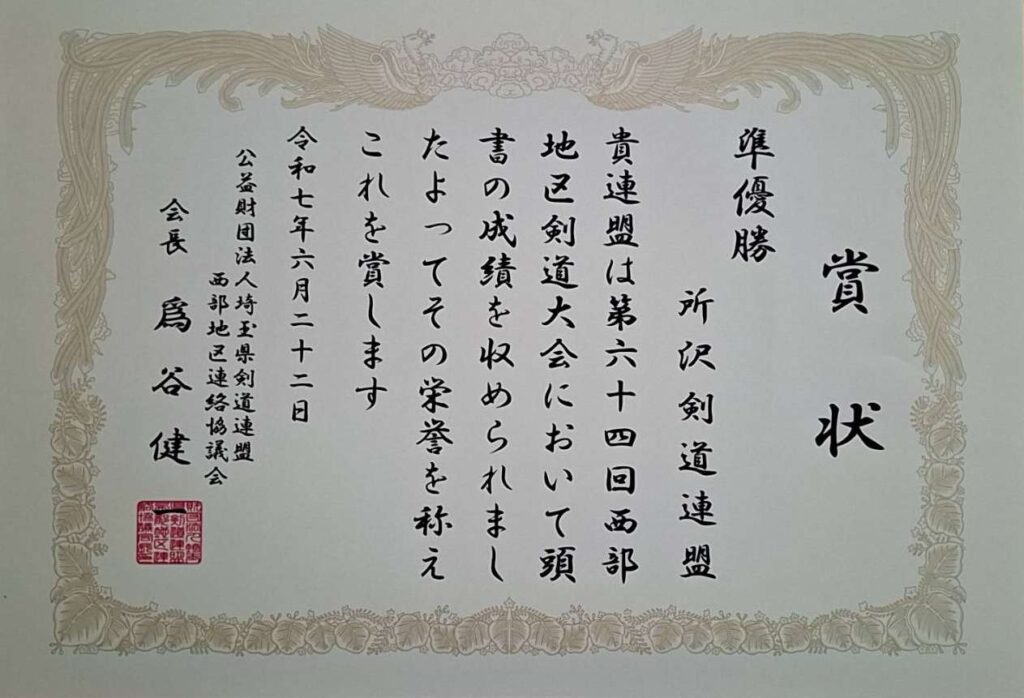 賞状
準優勝
所沢剣道連盟
貴連盟は第六十四回西部
地区剣道大会において頭
書の成績を収められまし
たよってその栄誉を称え
これを賞します
令和七年六月二十二日
公益財団法人埼玉県剣道連盟
西部地区連絡協議会
会長 爲谷健一